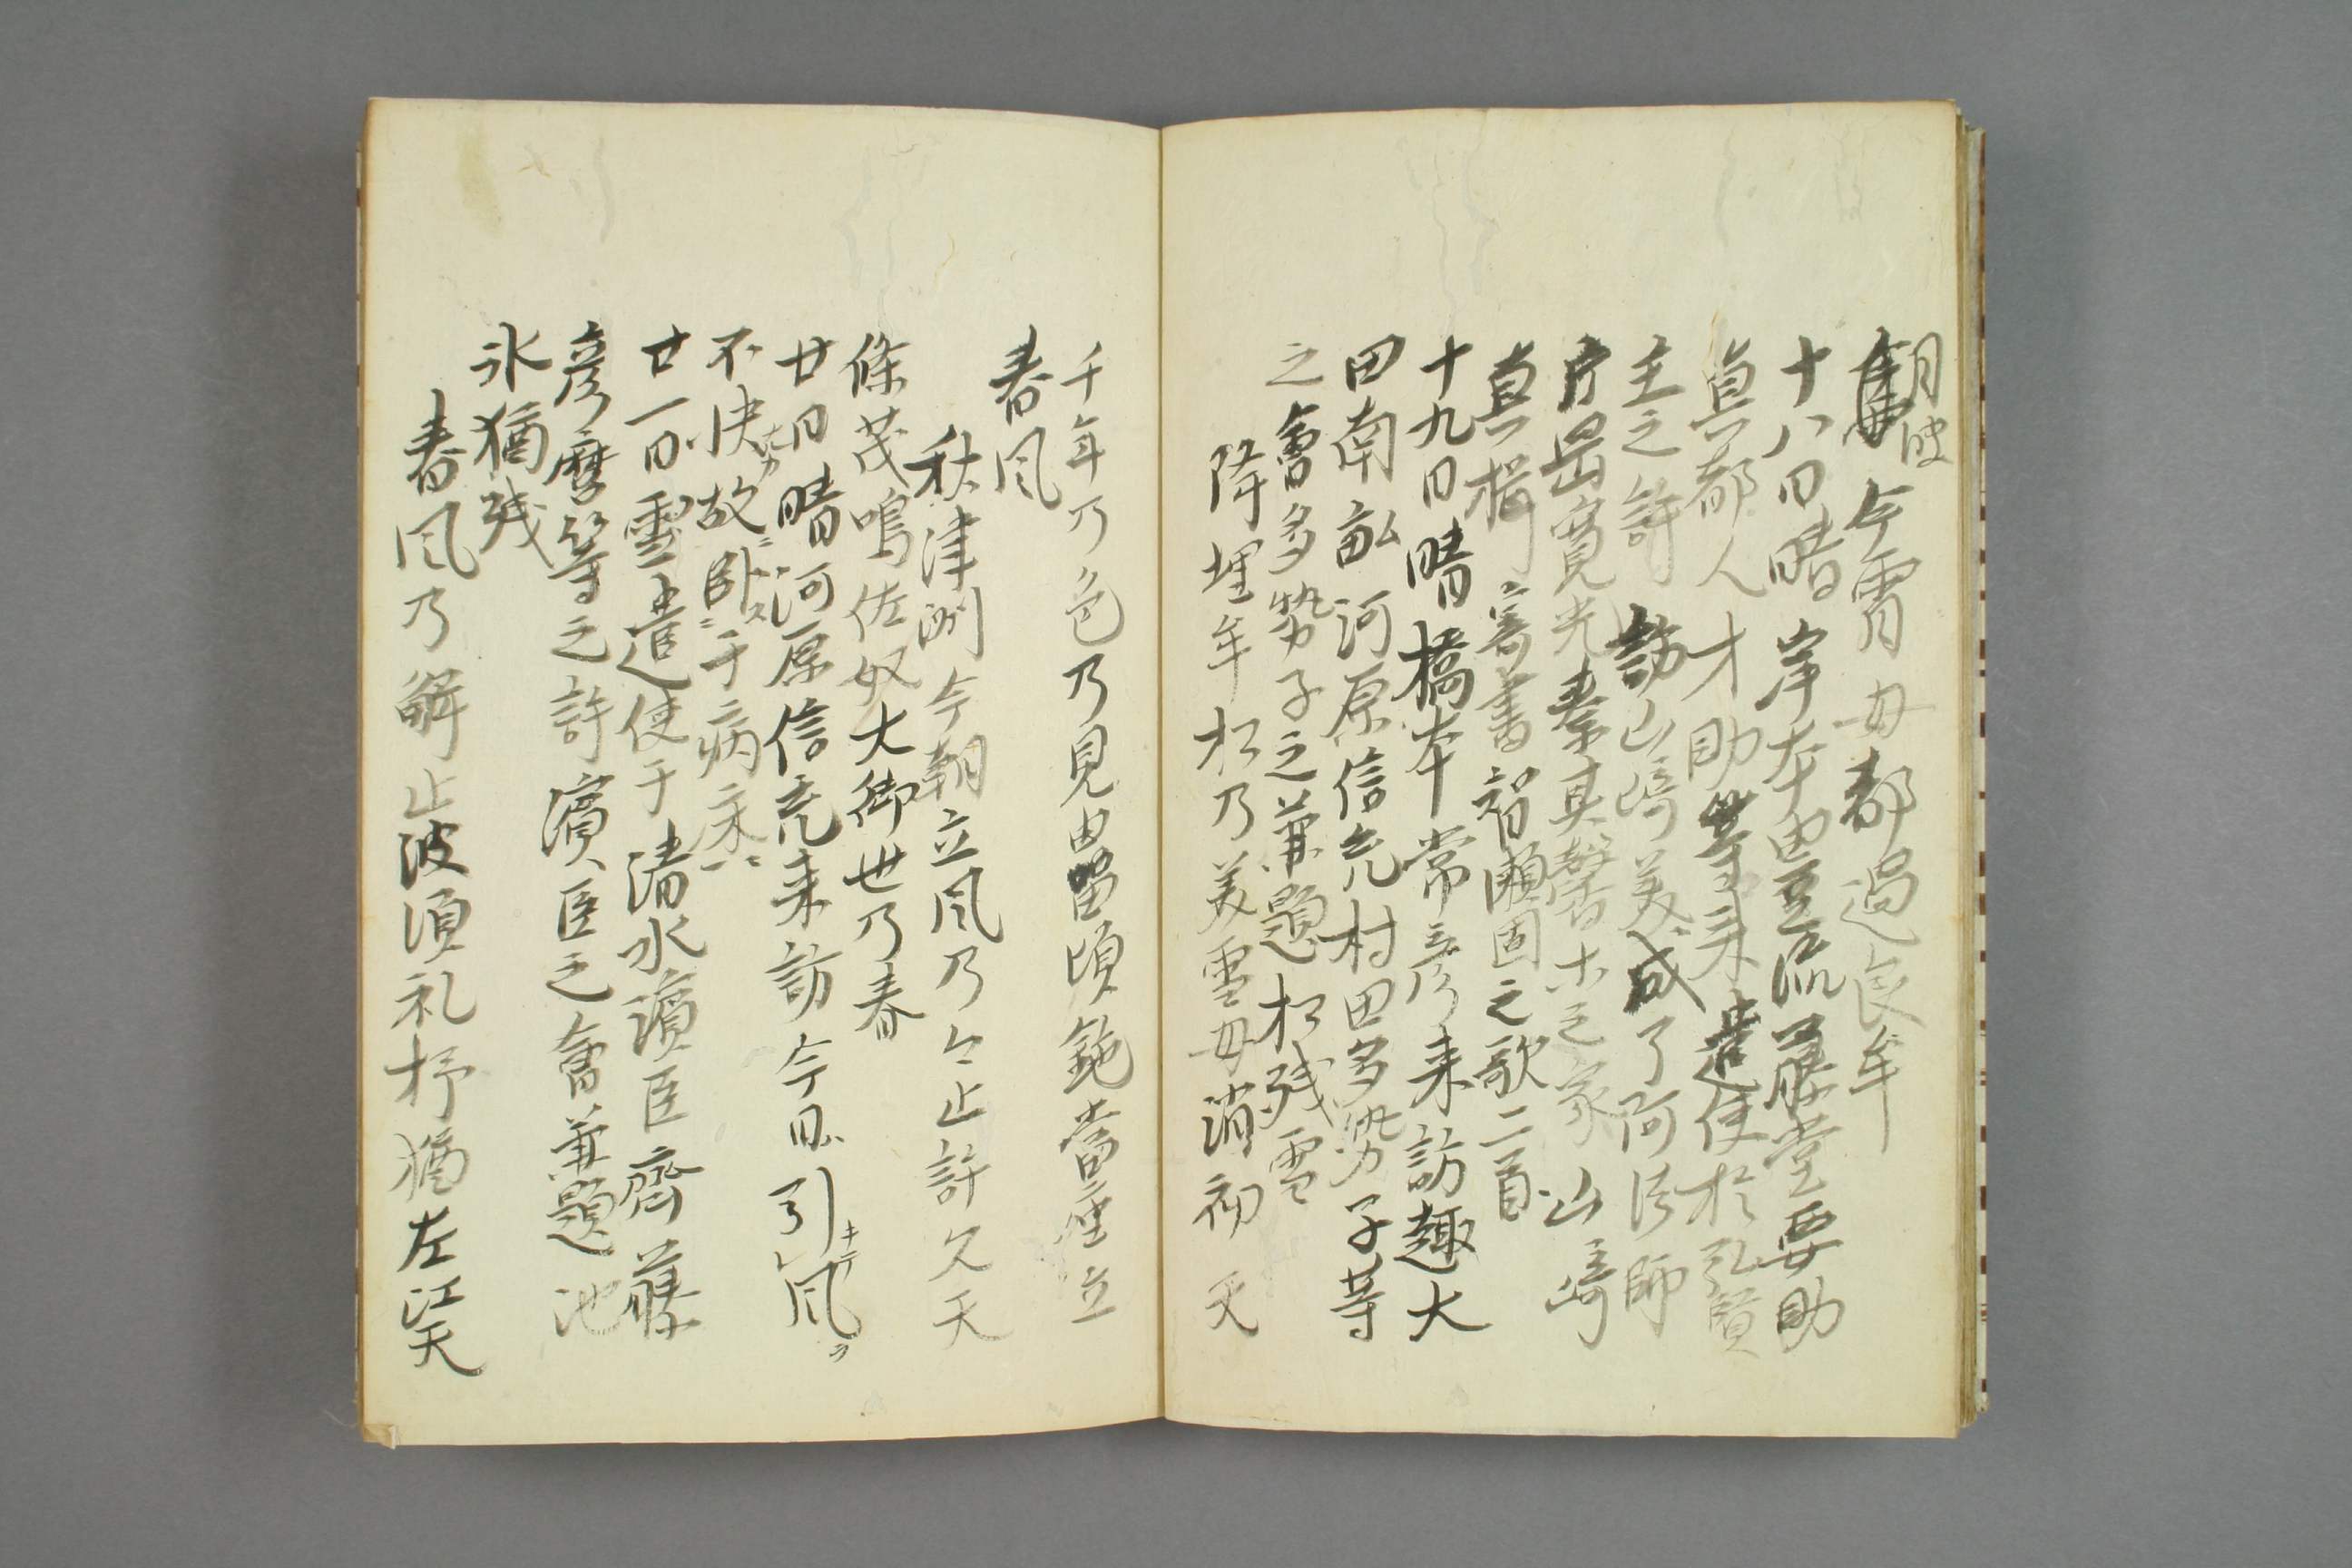 今宵毋都過良牟
十八日晴岸本由豆流藤堂要助
真都人才助等来遣使於弘賢
主之許訪山崎美成了阿法師
片岡寛光秦其馨木之家山崎
真楫寄書智瀬固之歌二首
十九日晴橋本常彦来訪趣大
田南畝河原信充村田多勢子等
之會多勢子之兼題松残雪
降埋牟松乃美雪毋消初天
千年乃色乃見由留頃鉋當座立
春風
秋津洲今朝立風乃今止許久天
條茂鳴佐奴大御世乃春
廿日晴河原信充来訪今日引風
不快故臥于病床
廿一日雪遣使于清水濱臣齊藤
彦麿等之許濱臣之會兼題池
氷猶残
春風乃解止波須礼杼猶左江天